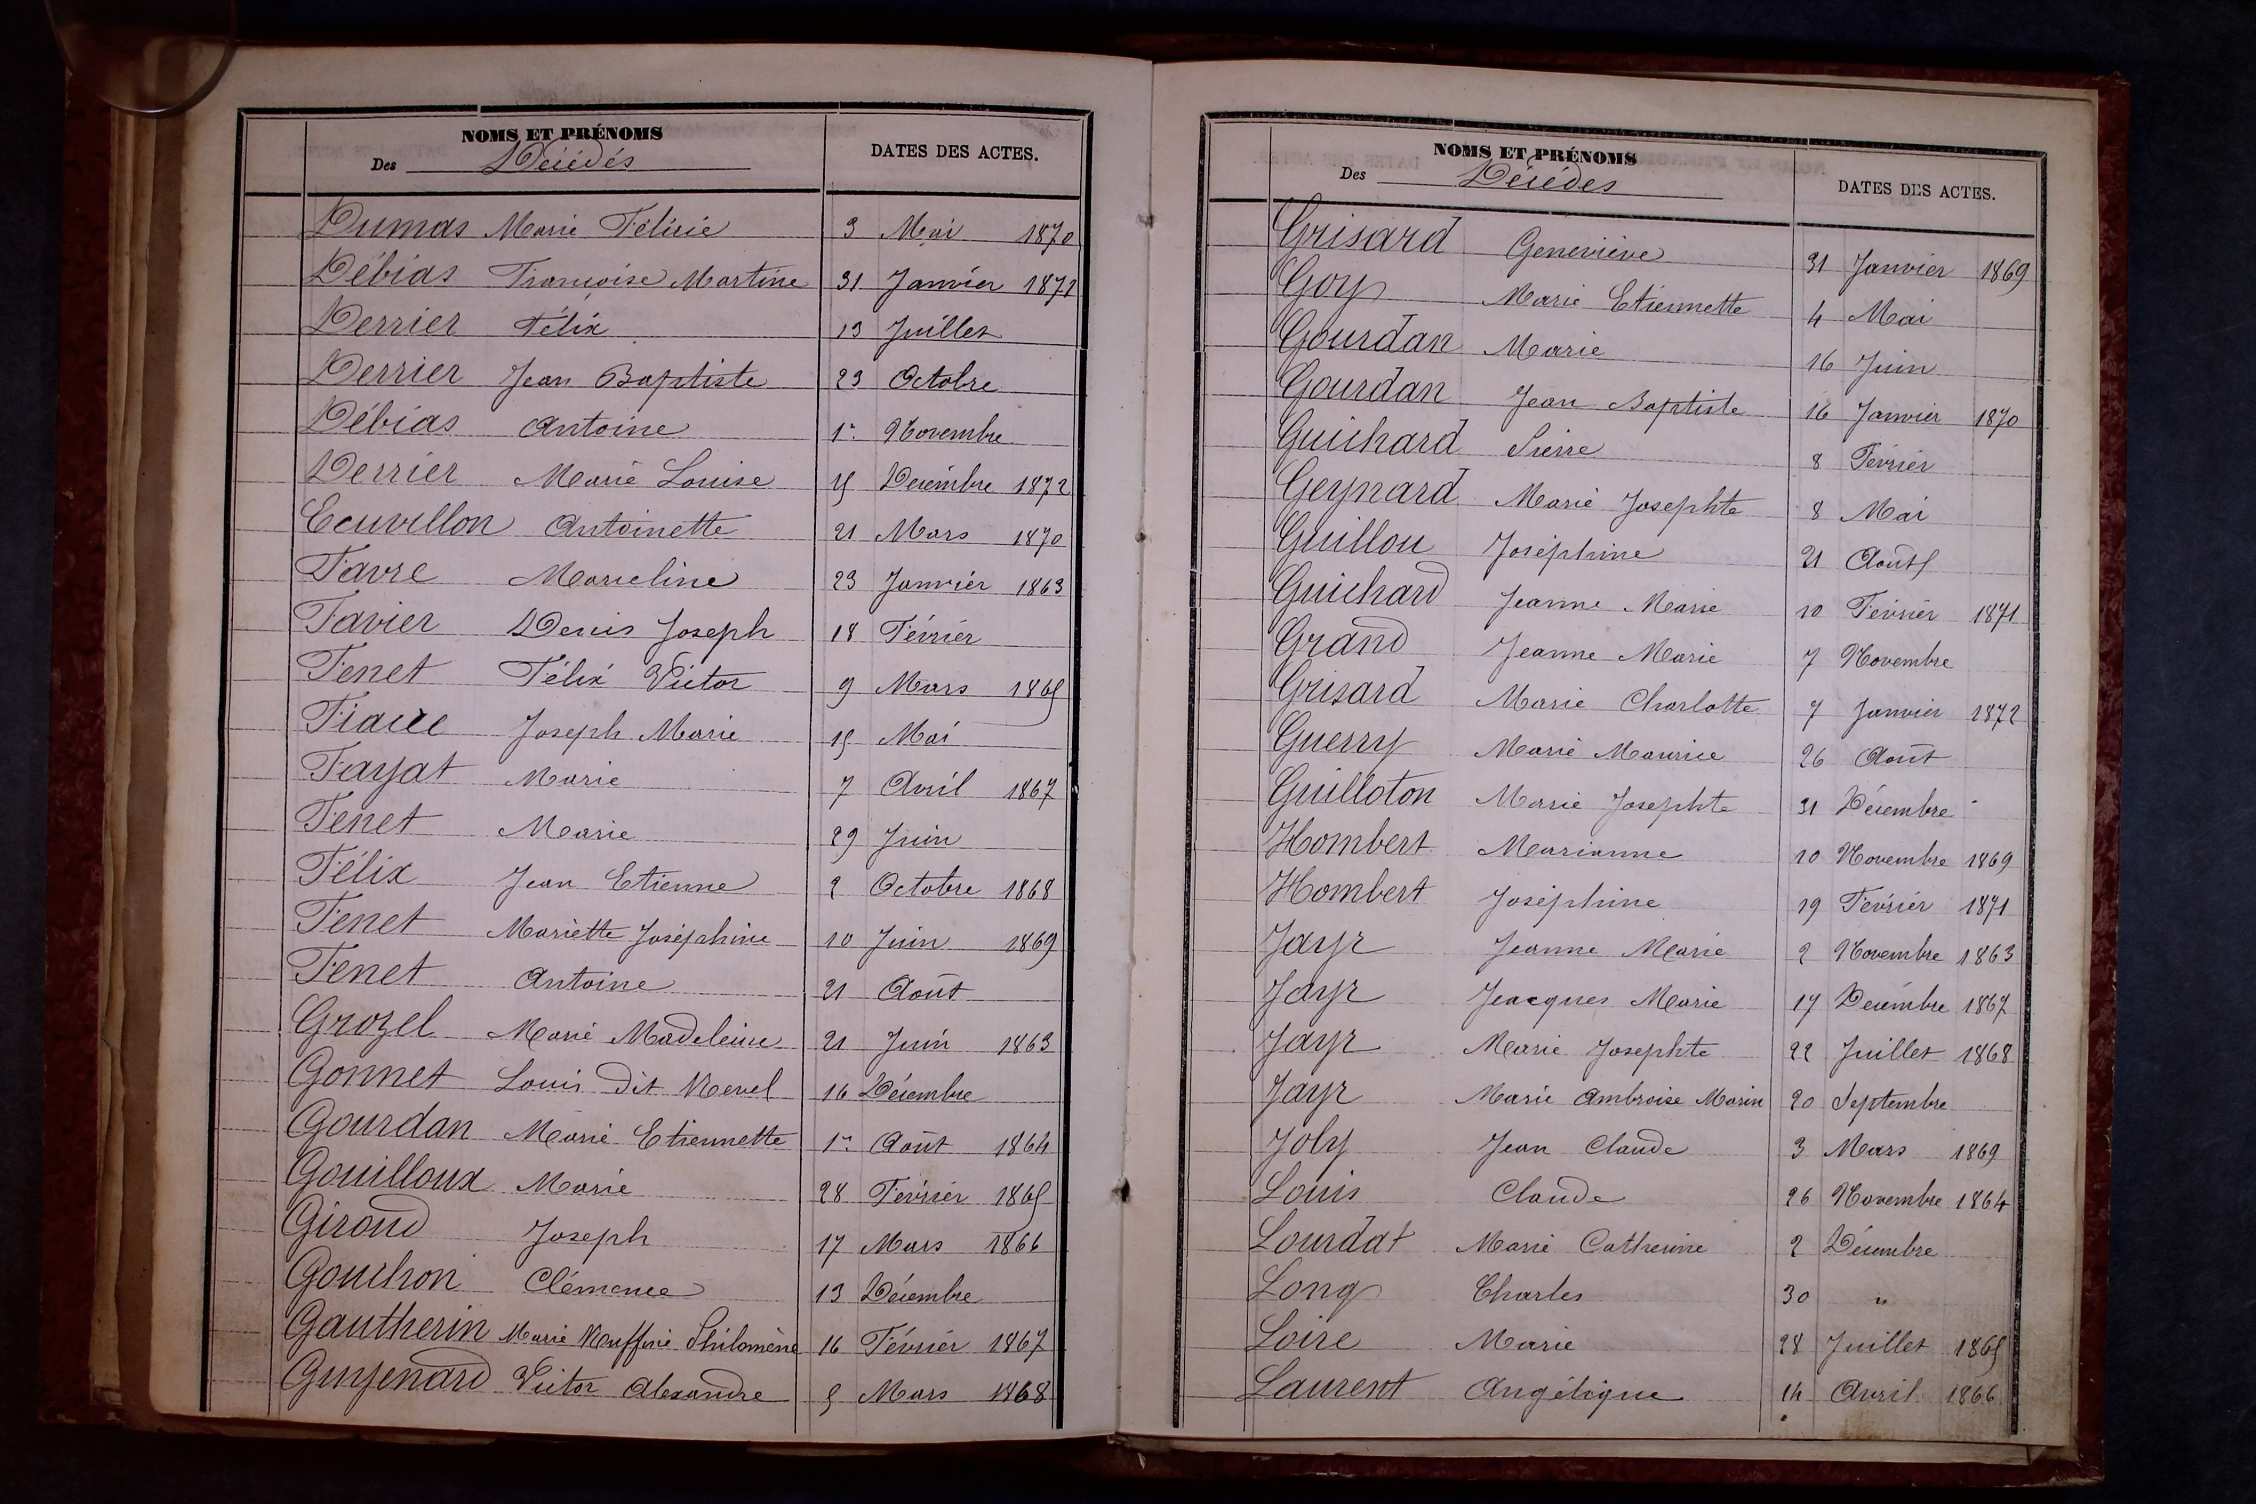 NOMS ET PRÉNOMS
Des Décédés
DATES DES ACTES.
Dumas Marie Félicie 3 Mai 1870
Débias Françoise Martine 31 Janvier 1871
Derrier Félix 13 Juillet
Derrier Jean Baptiste 23 Octobre
Débias Antoine 1er Novembre
Derrier Marie Louise 15 Décembre 1872
Ecuvillon Antoinette 21 Mars 1870
Favre Marceline 23 Janvier 1863
Favier Denis Joseph 18 Février
Fenet Félix Victor 9 Mars 1865
Fiacre Joseph Marie 15 Mai
Fayat Marie 7 Avril 1867
Fenet Marie 29 Juin
Félix Jean Etienne 2 Octobre 1868
Fenet Mariette Joséphine 10 Juin 1869
Fenet Antoine 21 Août
Grozel Marie Madeleine 21 Juin 1863
Gonnet Louis dit Revel 16 Décembre
Gourdan Marie Etiennette 1er Août 1864
Gouilloux Marie 28 Février 1865
Giroud Joseph 17 Mars 1866
Gouchon Clémence 13 Décembre
Gautherin Marie Ruffine Philomène 16 Février 1867
Guyenard Victor Alexandre 5 Mars 1868
NOMS ET PRÉNOMS
Des Décédes
DATES DES ACTES.
Grisard Geneviève 31 Janvier 1869
Goy Marie Etiennette 4 Mai
Gourdan Marie 16 Juin
Gourdan Jean Baptiste 16 Janvier 1870
Guichard Pierre 8 Février
Geynard Marie Josephte 8 Mai
Guillou Joséphine 21 Août
Guichard Jeanne Marie 10 Février 1871
Grand Jeanne Marie 7 Novembre
Grisard Marie Charlotte 7 Janvier 1872
Guerry Marie Maurice 26 Août
Guilloton Marie Josephte 31 Décembre
Hombert Marianne 10 Novembre 1869
Hombert Joséphine 19 Février 1871
Jayr Jeanne Marie 2 Novembre 1863
Jayr Jeacques Marie 17 Décembre 1867
Jayr Marie Josephte 22 Juillet 1868
Jayr Marie Ambroise Marin 20 Septembre
Joly Jean Claude 3 Mars 1869
Louis Claude 26 Novembre 1864
Lourdat Marie Catherine 2 Décembre
Long Charles 30 "
Loire Marie 28 Juillet 1865
Laurent Angélique 14 Avril 1866